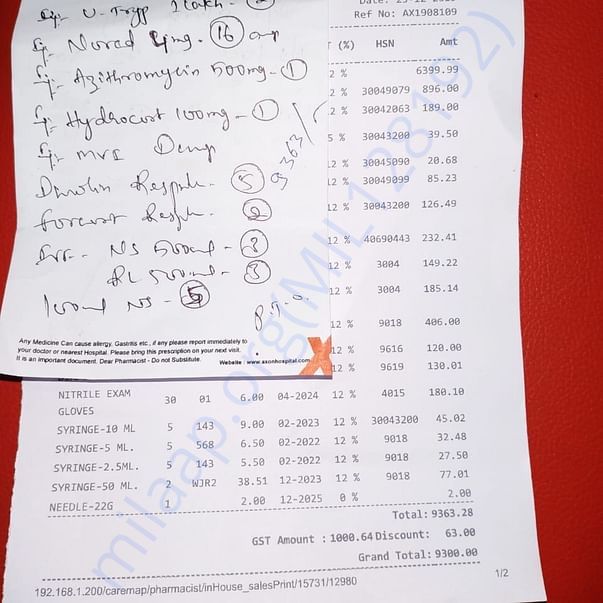 Date:
Ref No: AX1908109
(%) HSN Amt
2 % 6399.99
2 % 30049079 896.00
2 % 30042063 189.00
5 % 30043200 39.50
12 % 30045090 20.68
12 % 30049099 85.23
12 % 30043200 126.49
12 % 40690443 232.41
12 % 3004 149.22
12 % 3004 185.14
12 % 9018 406.00
12 % 9616 120.00
12 % 9619 130.01
Azithromycin 500mg - 1
Hydrocort 100mg - 1
MVI
9363/
NS 500ml - 3
RL 500ml - 3
100ml NS - 5
P.T.O.
Any Medicine Can cause allergy, Gastritis etc., if any please report immediately to
your doctor or nearest Hospital. Please bring this prescription on your next visit.
It is an important document. Dear Pharmacist - Do not Substitute.
Website : www.axonhospital.com
NITRILE EXAM 30 01 6.00 04-2024 12 % 4015 180.10
GLOVES
SYRINGE-10 ML 5 143 9.00 02-2023 12 % 30043200 45.02
SYRINGE-5 ML. 5 568 6.50 02-2022 12 % 9018 32.48
SYRINGE-2.5ML. 5 143 5.50 02-2022 12 % 9018 27.50
SYRINGE-50 ML. 2 WJR2 38.51 12-2023 12 % 9018 77.01
NEEDLE-22G 1 2.00 12-2025 0 % 2.00
Total: 9363.28
GST Amount : 1000.64 Discount: 63.00
Grand Total: 9300.00
192.168.1.200/caremap/pharmacist/inHouse_salesPrint/15731/12980
1/2
milaap.org(MIL128192)